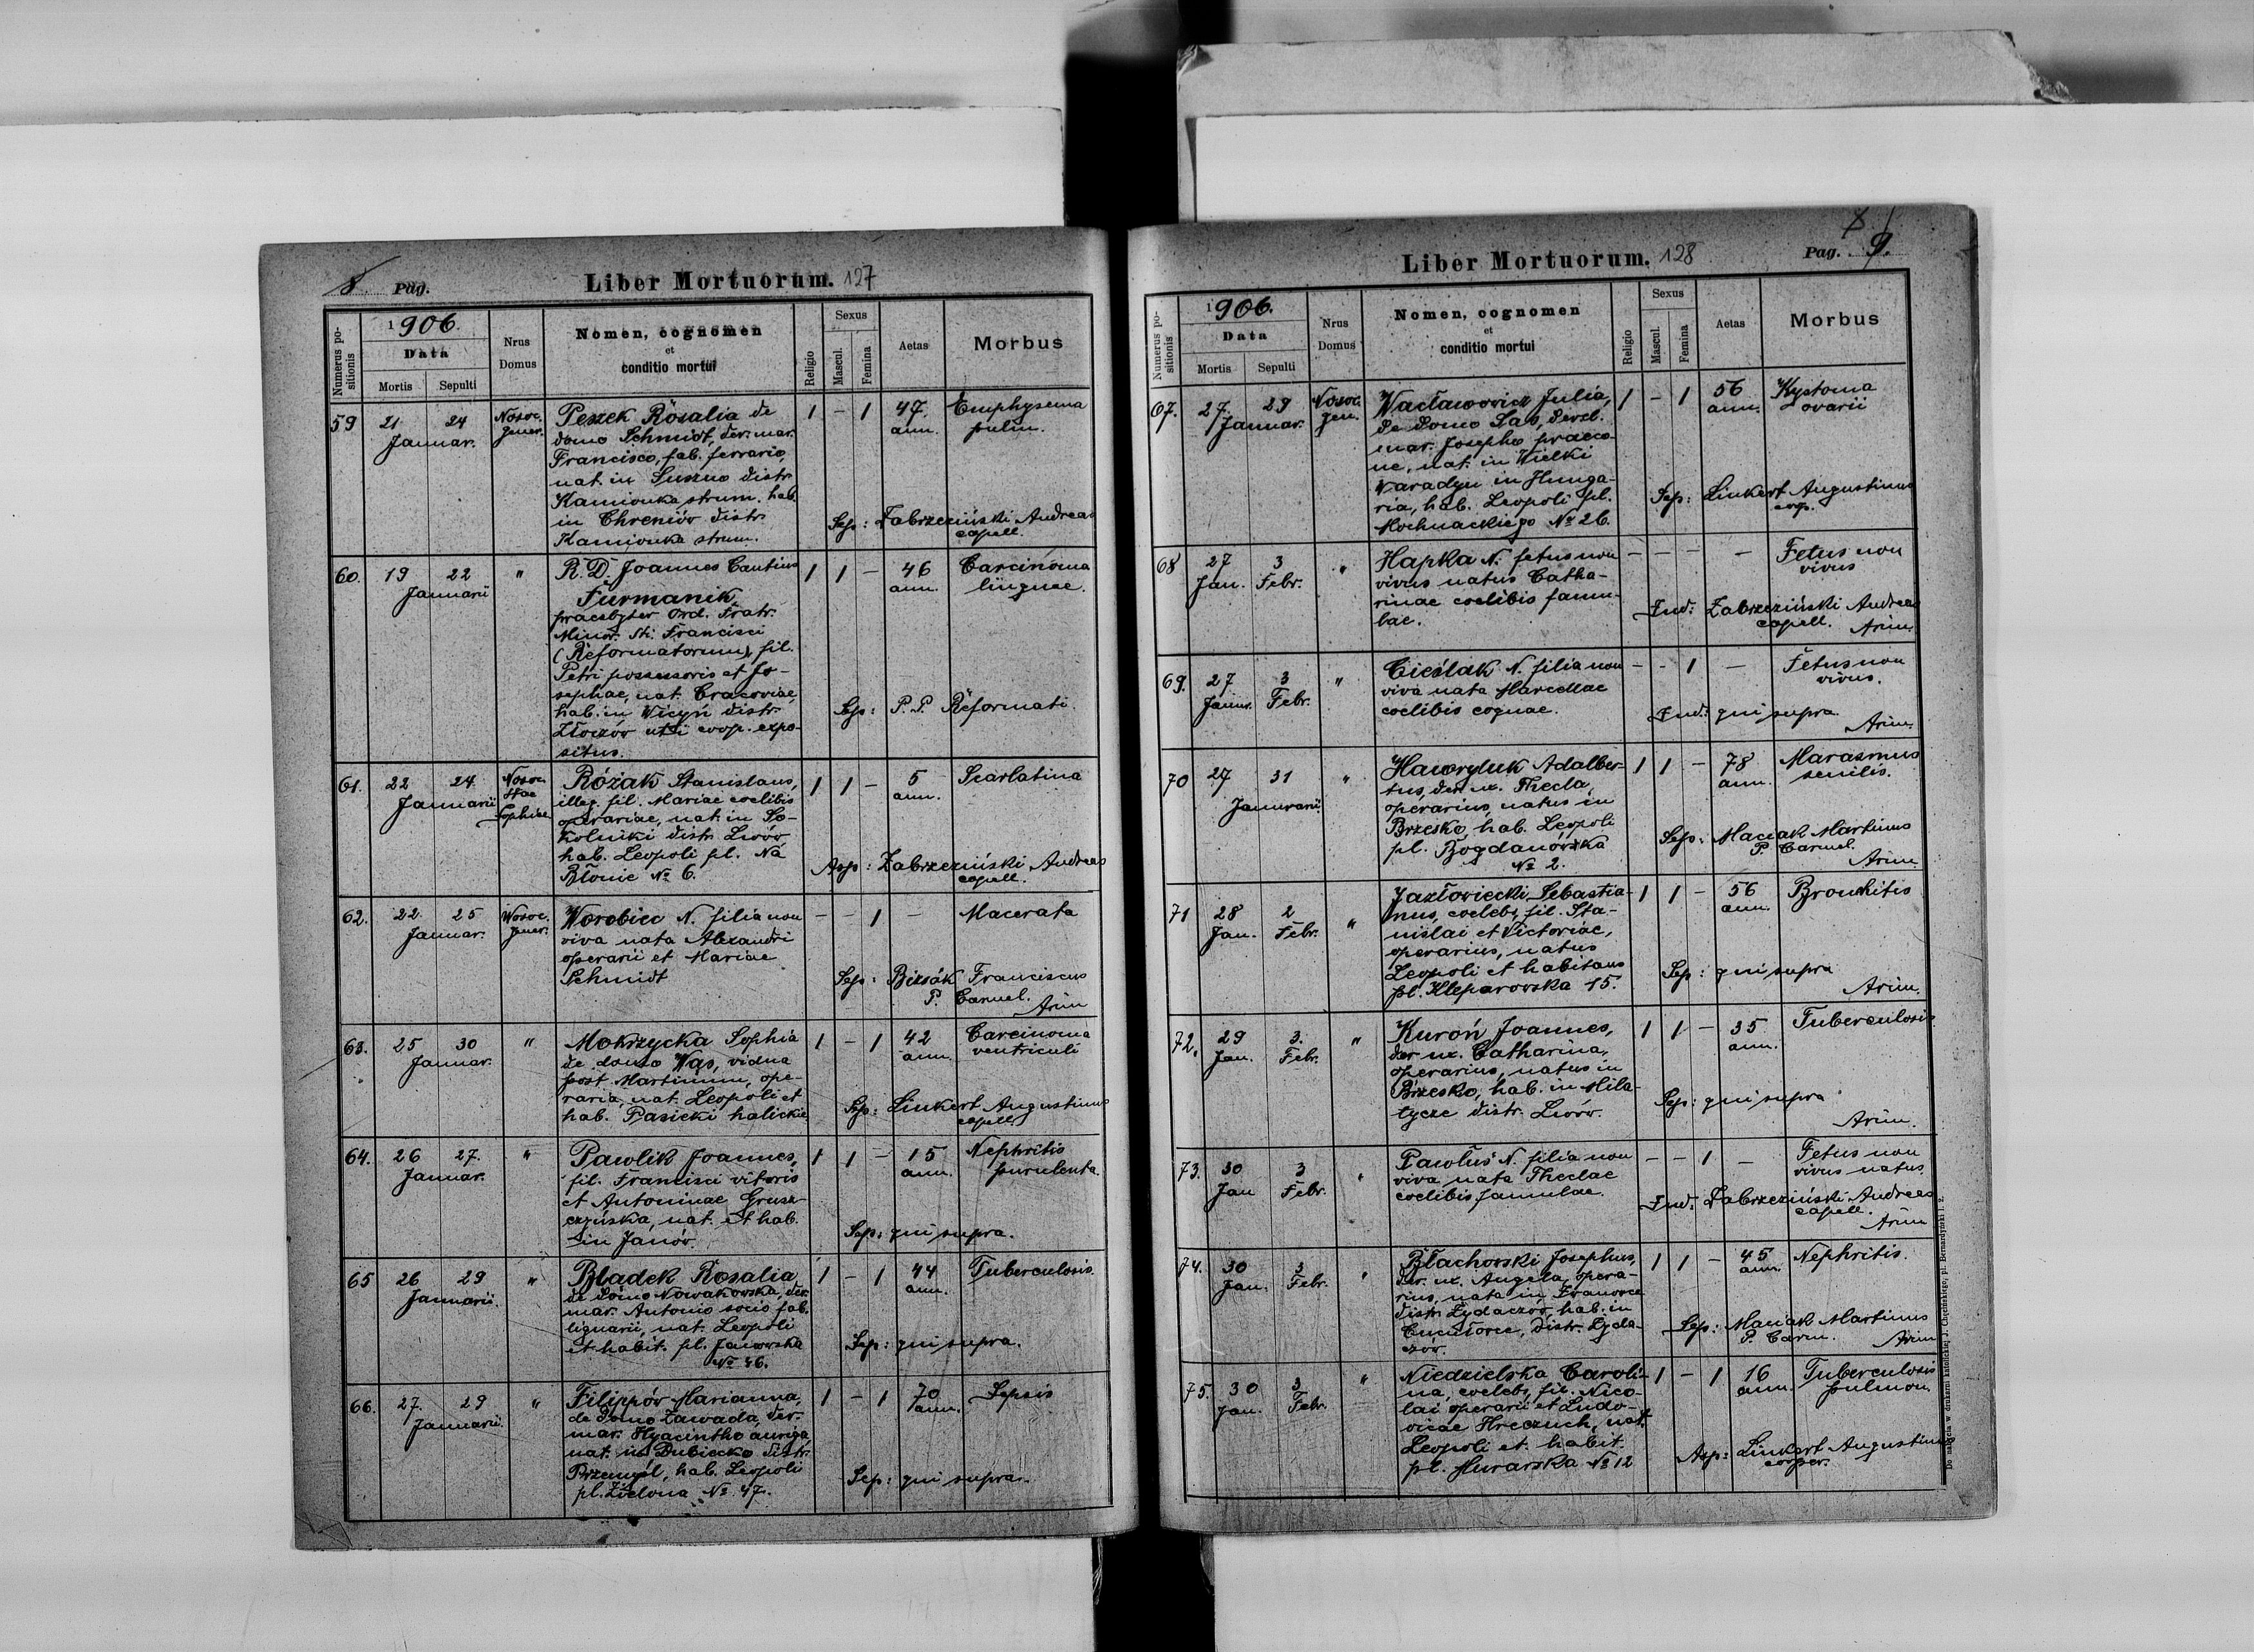 8. Pag.
Liber Mortuorum. 127
Numerus positionis
1906.
Data
Mortis Sepulti
Nrus Domus
Nomen, cognomen
et
conditio mortui
Religio
Sexus
Mascul. Femina
Aetas
Morbus
59 21 24 Januar. Nosoc. gener.
Peszek Rosalia de
domo Schmidt, der. mar.
Francisco, fab. ferrario,
nat. in Suszno distr.
Kamionka strum. hab.
in Chreniów distr.
Kamionka strum.
1 – 1 47. ann. Emphysema
pulm.
Sep: Zabrzeziński Andreas
capell.
60. 19 22 Januarii "
R. D. Joannes Cantius
Furmanik,
praesbyter Ord. Fratr.
Minor. Sti. Francisci
(Reformatorum), fil.
Petri possessoris et Jo-
sephae, nat. Cracoviae,
hab. in Wicyń distr.
Złoczów uti coop. expo-
situs.
1 1 – 46 ann. Carcinoma
linguae.
Sep: P. P. Reformati.
61. 22 24. Januarii Nosoc. Stae Sophiae
Różak Stanislaus,
illeg. fil. Mariae coelibis
operariae, nat. in So-
kolniki distr. Lwów
hab. Leopoli pl. Na
Błonie № 6.
1 1 – 5 ann. Scarlatina
Asp: Zabrzeziński Andreas
capell.
62. 22. 25 Januar. Nosoc. gener.
Worobiec N. filia non
viva nata Alexandri
operarii et Mariae
Schmidt
– – 1 – Macerata
Sep: Bizsák Franciscus
P. Carmel.
Arim
63. 25 30 Januar. "
Mokrzycka Sophia
de domo Wąs, vidua
post Martinum, ope-
raria, nat. Leopoli et
hab. Pasieki halickie
1 – 1 42 ann. Carcinoma
ventriculi
Sep: Linkert Augustinus
capell.
64. 26 27. Januar. "
Pawlik Joannes,
fil. Francisci vitoris
et Antoninae Grusz-
czyńska, nat. et hab.
in Janów.
1 1 – 15 ann. Nephritis
purulenta
Sep: qui supra.
65 26 29 Januarii. "
Bładek Rosalia
de domo Nowakowska, der.
mar. Antonio socio fab.
lignarii, nat. Leopoli
et habit. pl. Janowska
№ 46.
1 – 1 44 ann. Tuberculosis.
Sep: qui supra.
66. 27. 29 Januarii. "
Filippów Marianna,
de domo Zawada, der.
mar. Hyacintho auriga,
nat. in Dubiecko distr.
Przemyśl, hab. Leopoli
pl. Zielona № 47.
1 – 1 70 ann. Sepsis
Sep: qui supra.
Liber Mortuorum. 128
Pag. 9.
Numerus positionis
1906.
Data
Mortis Sepulti
Nrus Domus
Nomen, cognomen
et
conditio mortui
Religio
Sexus
Mascul. Femina
Aetas
Morbus
67. 27. 29 Januar. Nosoc. gen.
Wacławowicz Julia,
de domo Sas, derel.
mar. Josepho praeco-
ne, nat. in Wielki
Waradyn in Hunga-
ria, hab. Leopoli pl.
Mochnackiego № 26.
1 – 1 56 ann. Kystoma
ovarii
Sep: Linkert Augustinus
coop.
68 27 Jan. 3 Febr. "
Hapka N. fetus non
vivus natus Catha-
rinae coelibis famu-
lae.
– – – – Fetus non
vivus
Ind: Zabrzeziński Andreas
capell. Arim.
69. 27 Januar. 3 Febr. "
Cieślak N. filia non
viva nata Marcellae
coelibis coquae.
– – 1 – Fetus non
vivus.
Ind: qui supra
Arim.
70 27 31 Januarii "
Hawryluk Adalber-
tus, der. ux. Thecla,
operarius, natus in
Brzesko, hab. Leopoli
pl. Bogdanówka
№ 2.
1 1 – 78 ann. Marasmus
senilis.
Sep: Maciak Martinus
P. Carmel.
Arim.
71 28 Jan. 2 Febr. "
Jazłowiecki Sebastia-
nus, coelebs, fil. Sta-
nislai et Victoriae,
operarius, natus
Leopoli et habitans
pl. Kleparowska 15.
1 1 – 56 ann. Bronchitis
Sep: qui supra
Arim.
72. 29 Jan. 3. Febr. "
Kuroń Joannes,
der. ux. Catharina,
operarius, natus in
Brzesko, hab. in Mila-
tycze distr. Lwów.
1 1 – 35 ann. Tuberculosis
Sep: qui supra
Arim.
73. 30 Jan 3 Febr. "
Pawluś N. filia non
viva nata Theclae
coelibis famulae.
– – 1 – Fetus non
vivus natus
Ind: Zabrzeziński Andreas
capell.
Arim
74. 30 Jan. 3 Febr. "
Błachowski Josephus,
der. ux. Angela, opera-
rius, nata in Iwanowce
distr. Żydaczów, hab. in
Cucułowce, distr. Żyda-
czów.
1 1 – 45 ann. Nephritis.
Sep: Maciak Martinus
P. Carm. Arim
75. 30 Jan. 3 Febr. "
Niedzielska Caroli-
na, coelebs, fil. Nico-
lai operarii et Ludo-
vicae Hreczuch, nat.
Leopoli et habit.
pl. Murarska № 12
1 – 1 16 ann. Tuberculosis
pulmon.
Asp: Linkert Augustinus
cooper.
Do nabycia w drukarni katolickiej J. Chęcińskiego, pl. Bernardyński l. 2.